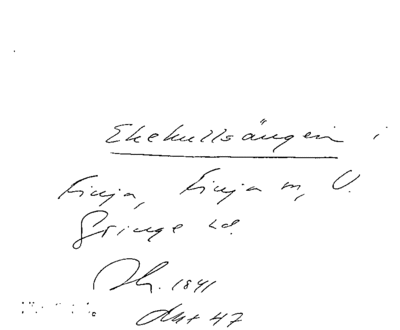 Ekekullsängen i
Finja, Finja m, V.
Göinge hd.
Sk. 1841
akt 47